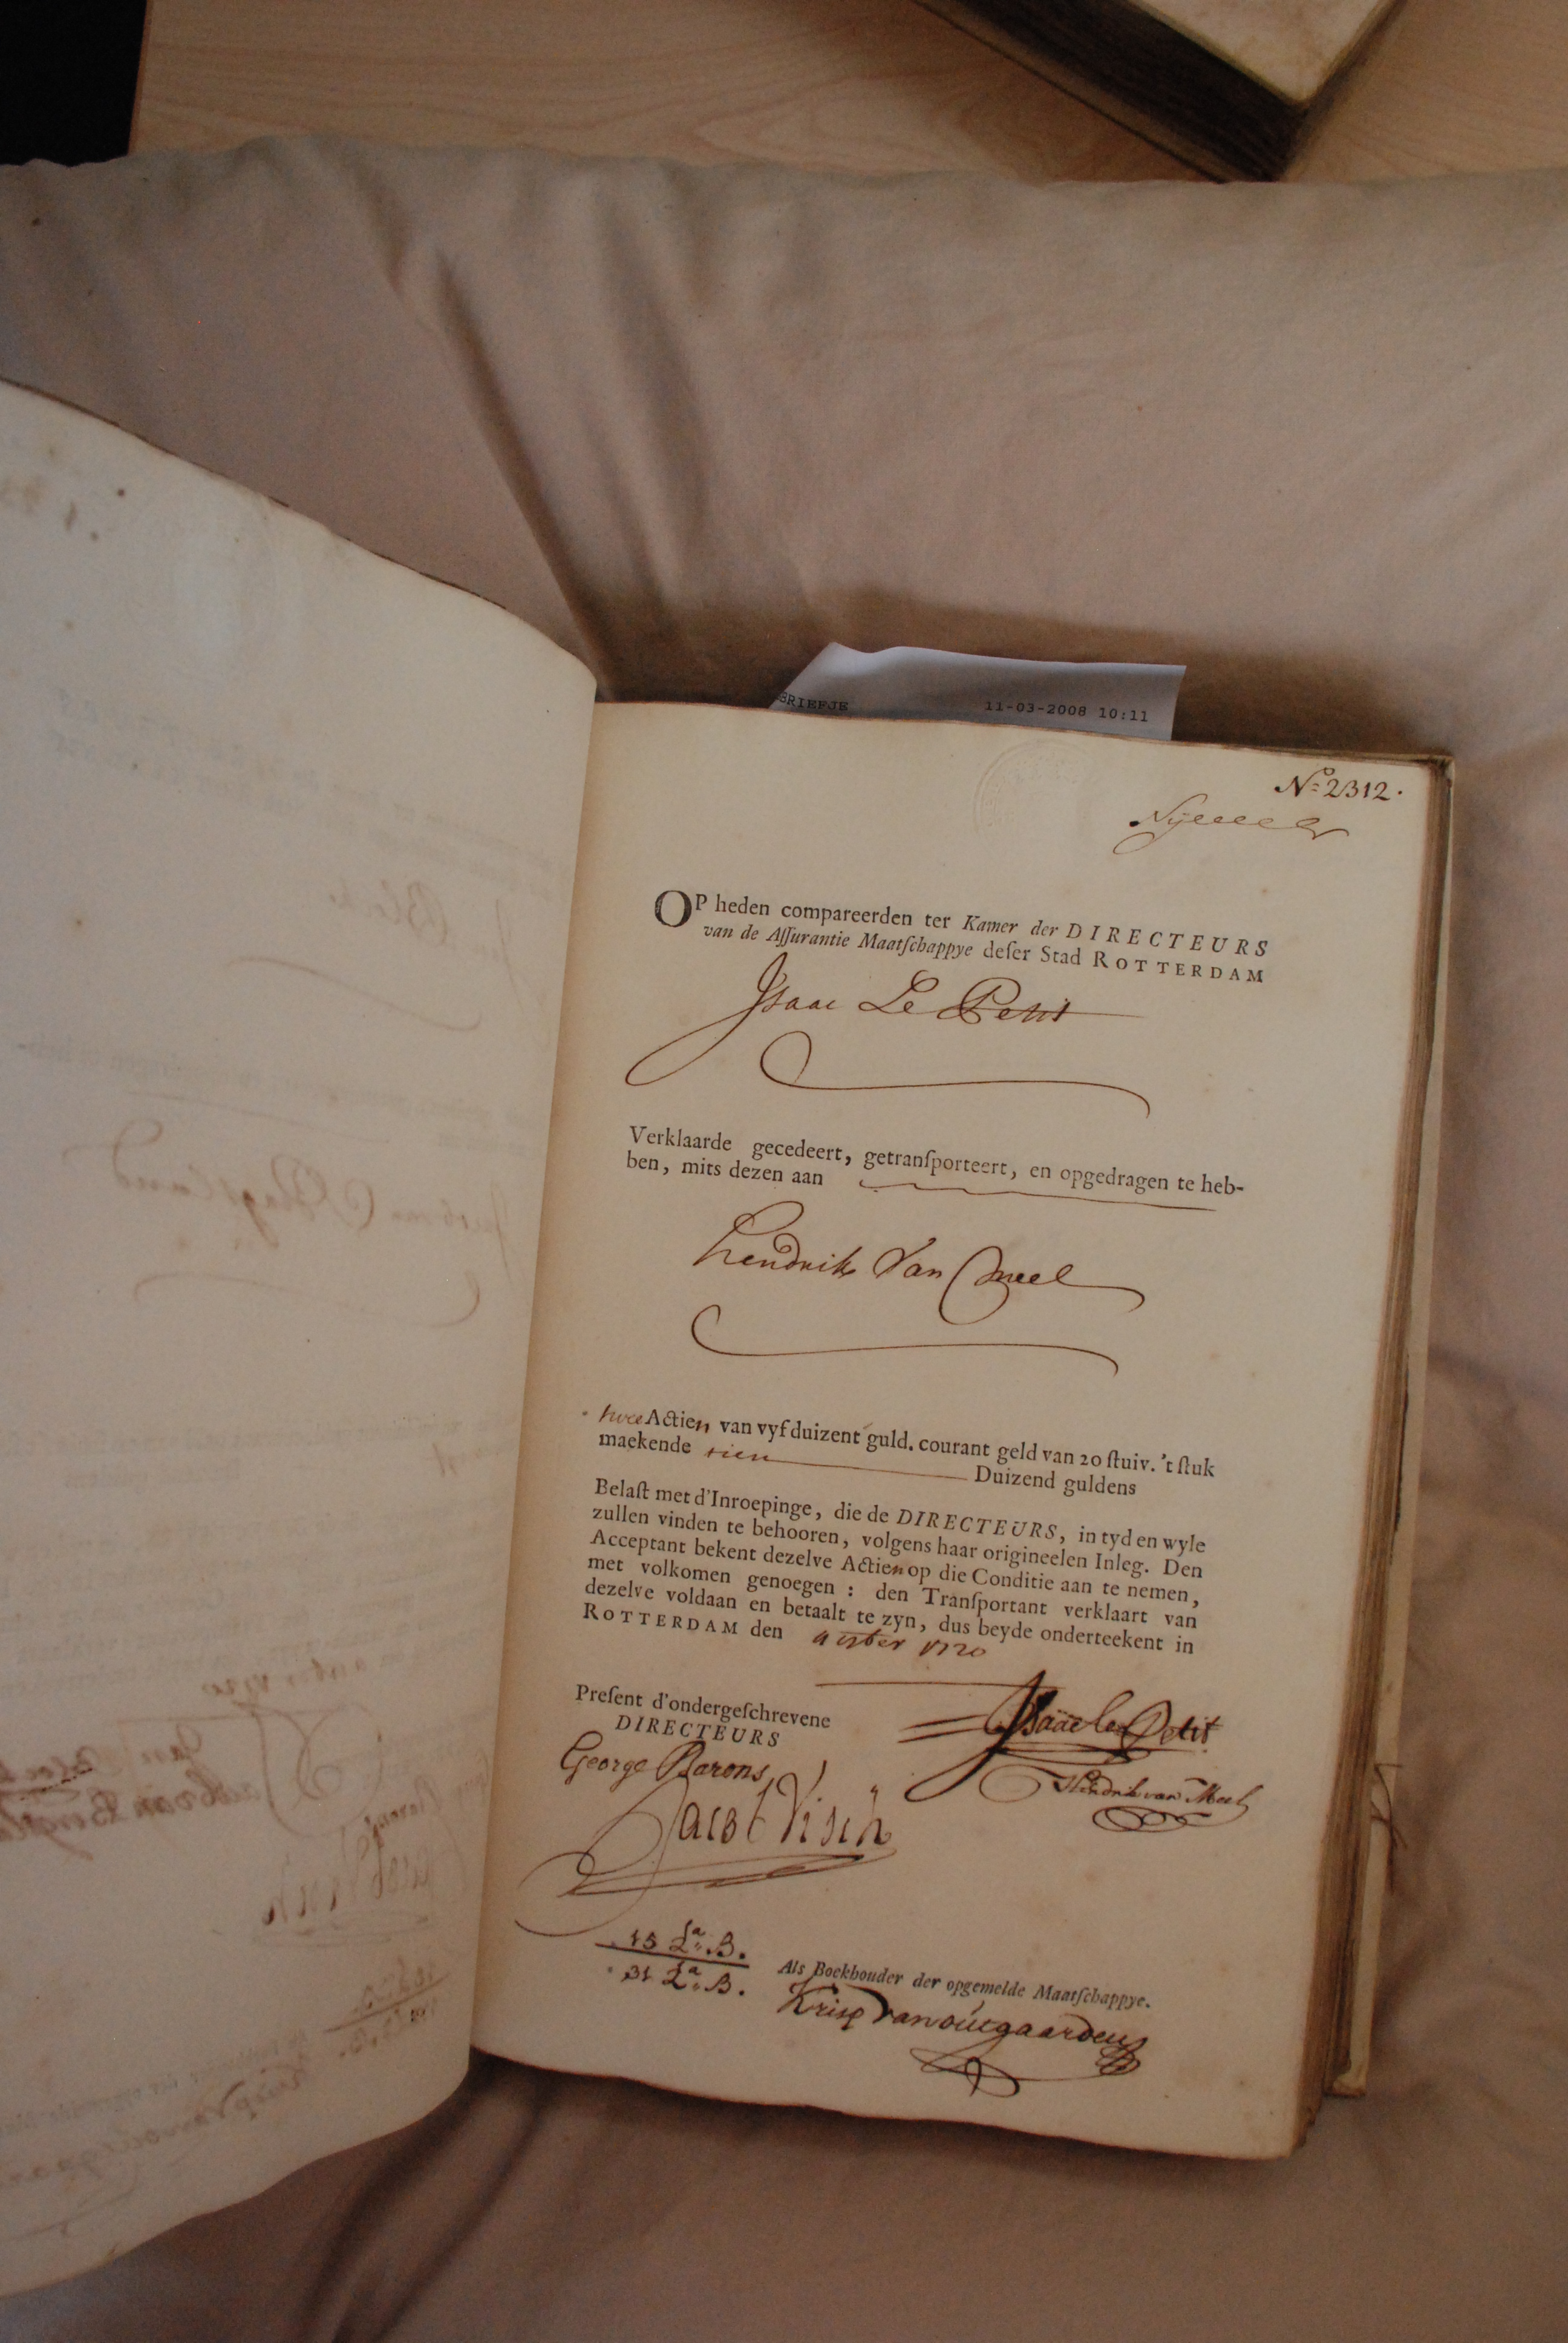 BRIEFJE 11-03-2008 10:11
No 2312.
OP heden compareerden ter Kamer der DIRECTEURS
van de Aſſurantie Maatſchappye deſer Stad ROTTERDAM
Isaac Le Petit
Verklaarde gecedeert, getranſporteert, en opgedragen te heb-
ben, mits dezen aan
hendrik Van Meel
twee Actien van vyf duizent guld. courant geld van 20 ſtuiv. 't ſtuk
maekende tien Duizend guldens
Belaſt met d'Inroepinge, die de DIRECTEURS, in tyd en wyle
zullen vinden te behooren, volgens haar origineelen Inleg. Den
Acceptant bekent dezelve Actien op die Conditie aan te nemen,
met volkomen genoegen : den Tranſportant verklaart van
dezelve voldaan en betaalt te zyn, dus beyde onderteekent in
ROTTERDAM den 1720
Preſent d'ondergeſchrevene
DIRECTEURS
Isaäc le Petit
George Barons
Hendrik van Meel
Jacob Visch
15 La. B.
31 La. B.
Als Boekhouder der opgemelde Maatſchappye.
Krisp van outgaarden